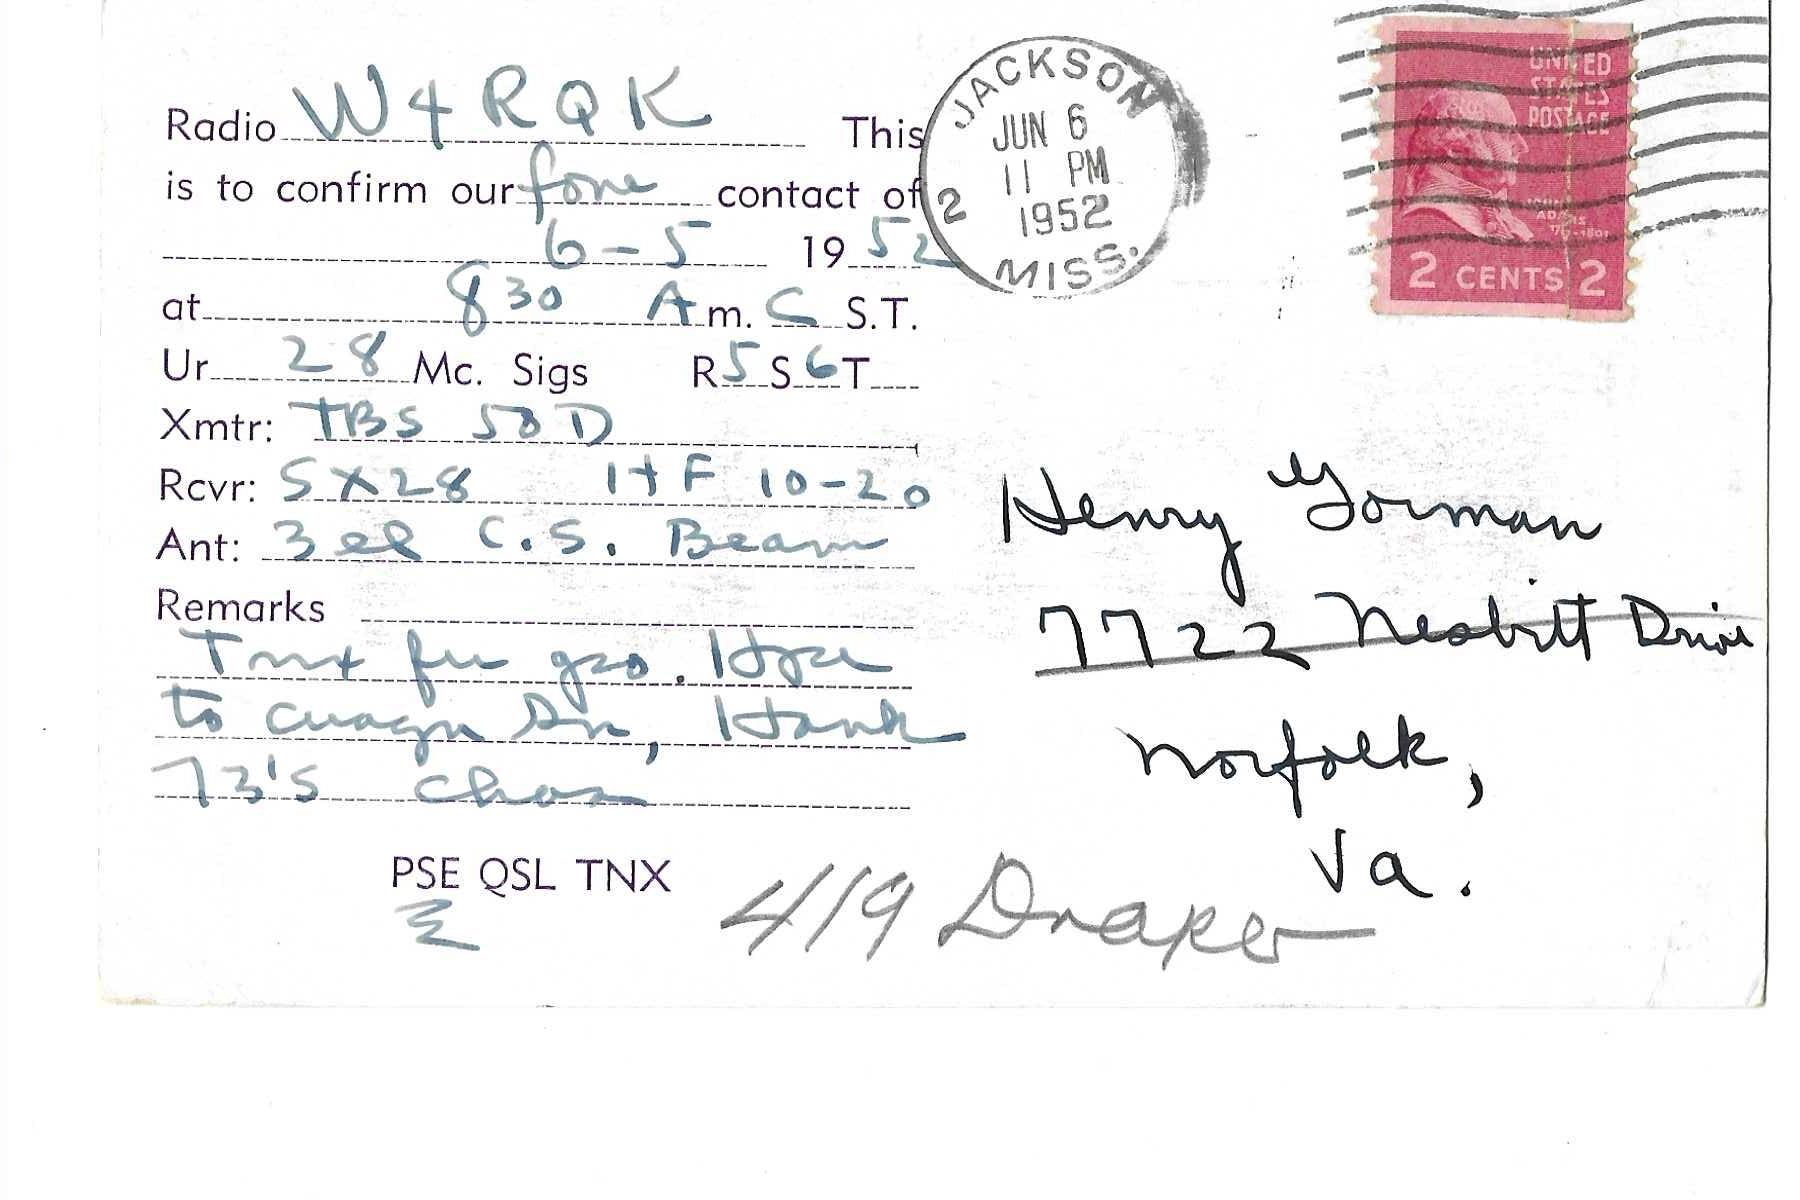 Radio W4RQK This
is to confirm our fone contact of
6-5 1952
at 8 30 A.m. C S.T.
Ur 28 Mc. Sigs R5 S6 T
Xmtr: TBS 50 D
Rcvr: SX28 HF 10-20
Ant: 3 el C.S. Beam
Remarks
Tnx fer qso. Hpe
to cuagn Sn, Hank
73's Chas
PSE QSL TNX
JACKSON
JUN 6
11 PM
2 1952
MISS.
UNITED
STATES
POSTAGE
JOHN
ADAMS
1797-1801
2 CENTS 2
Henry Gorman
7722 Nesbitt Drive
Norfolk,
Va.
419 Draper